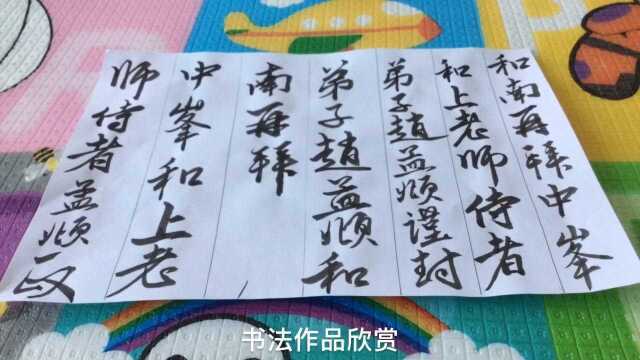 和南再拜中峯
和上老师侍者
弟子趙孟頫謹封
弟子趙孟頫和
南再拜
中峯和上老
师侍者孟頫
书法作品欣赏